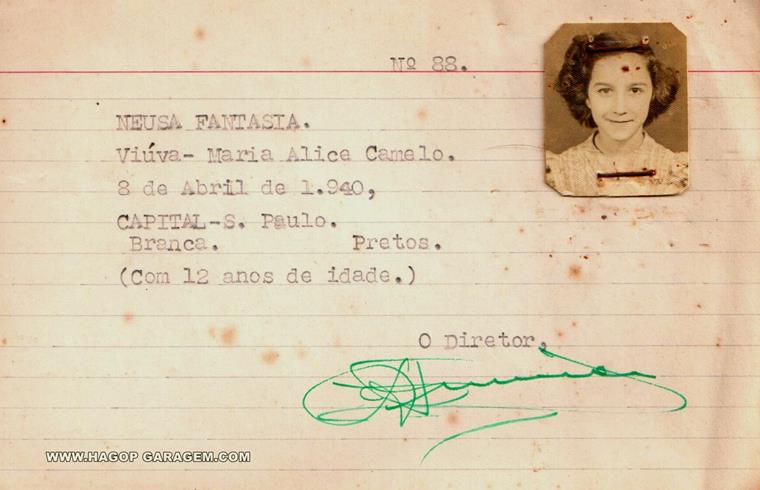 Nº 88.
NEUSA FANTASIA.
Viúva- Maria Alice Camelo.
8 de Abril de 1.940,
CAPITAL-S. Paulo.
Branca. Pretos.
(Com 12 anos de idade.)
O Diretor,
WWW.HAGOP GARAGEM.COM